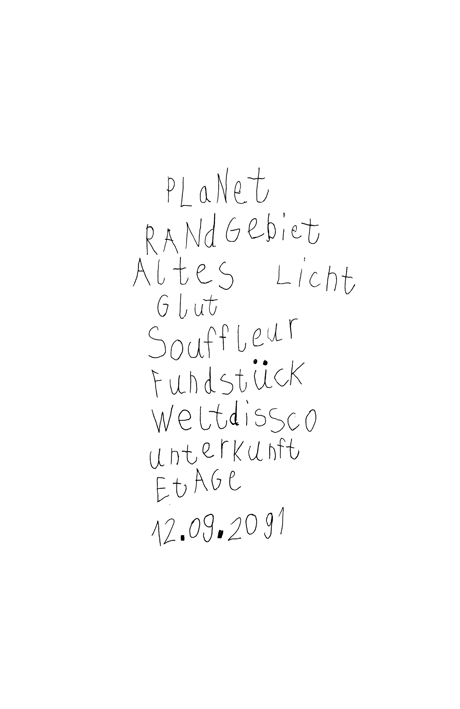 PLaNet
RANdGebiet
Altes Licht
Glut
Souffleur
Fundstück
Weltdissco
unterkunft
EtAGe
12.09.2091